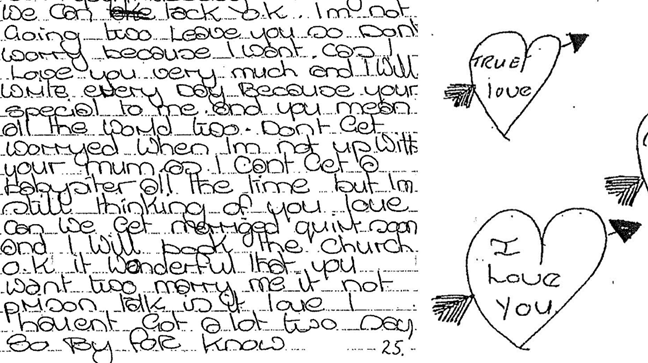 We can talk o.k.. Im not
Going two Leave you so Dont
worry because I want. cos I
Love you very much and I Will
write every Day Because your
special to me. and you mean
all the World two. Dont Get
worryed When Im not up With
your mum. as I cant Get a
babysiter all the time but Im
still thinking of you love
can We Get marriged quit soon
and I Will book the Church
o.k it Wonderful that you
want two marry me it not
prison talk is it love I
havent Got a lot two Day
So By for Know
25.
TRUE
love
I
Love
You